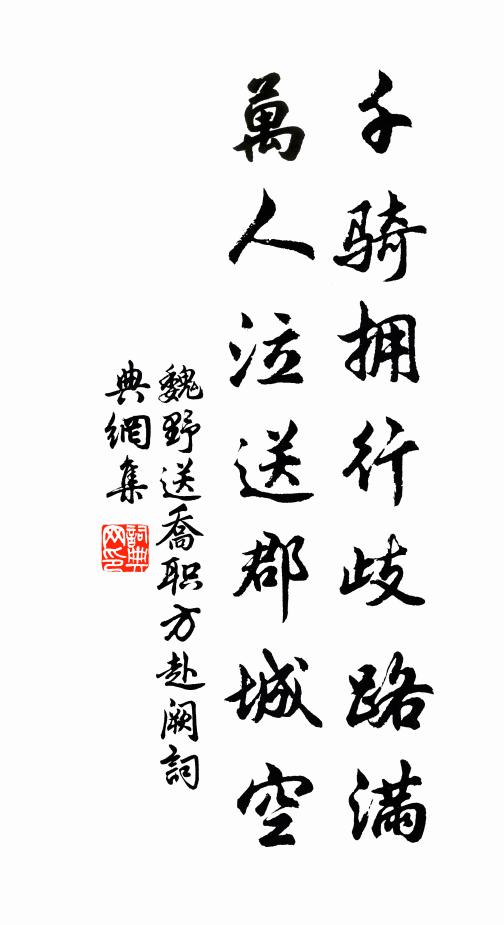 千骑拥行歧路满
萬人泣送郡城空
魏野送喬职方赴阙詞
典網集
詞典网印